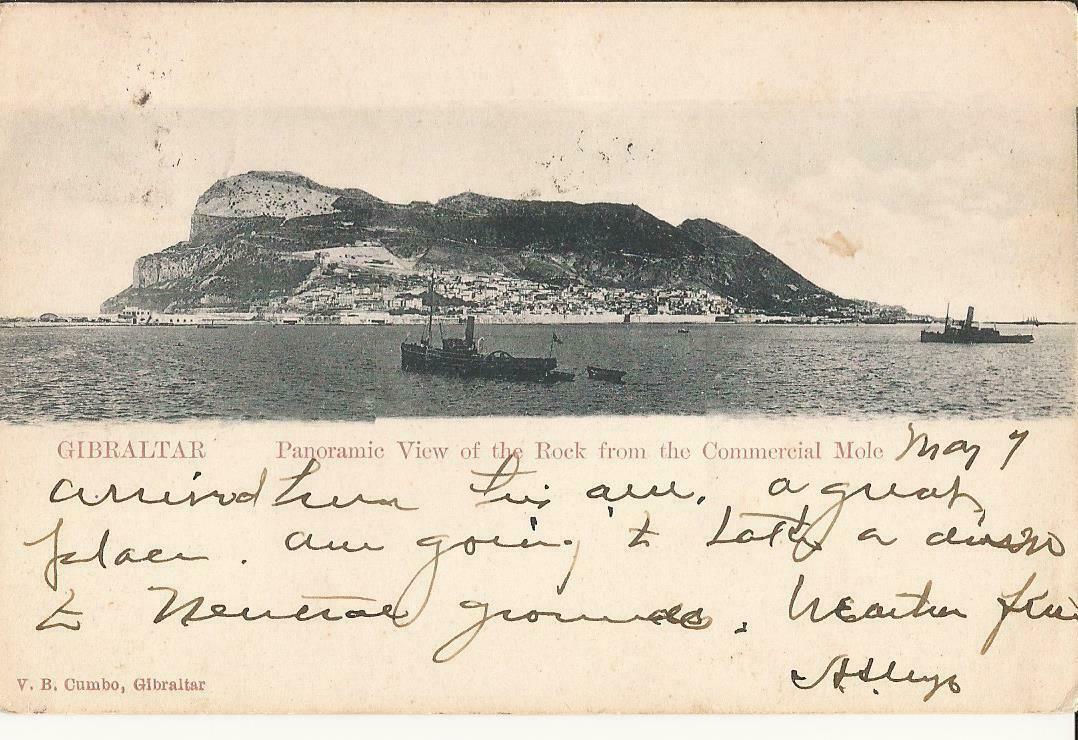 GIBRALTAR Panoramic View of the Rock from the Commercial Mole May 7
arrived here this am. a great
place. am going to take a
to Neutral grounds. Weather fine
V. B. Cumbo, Gibraltar